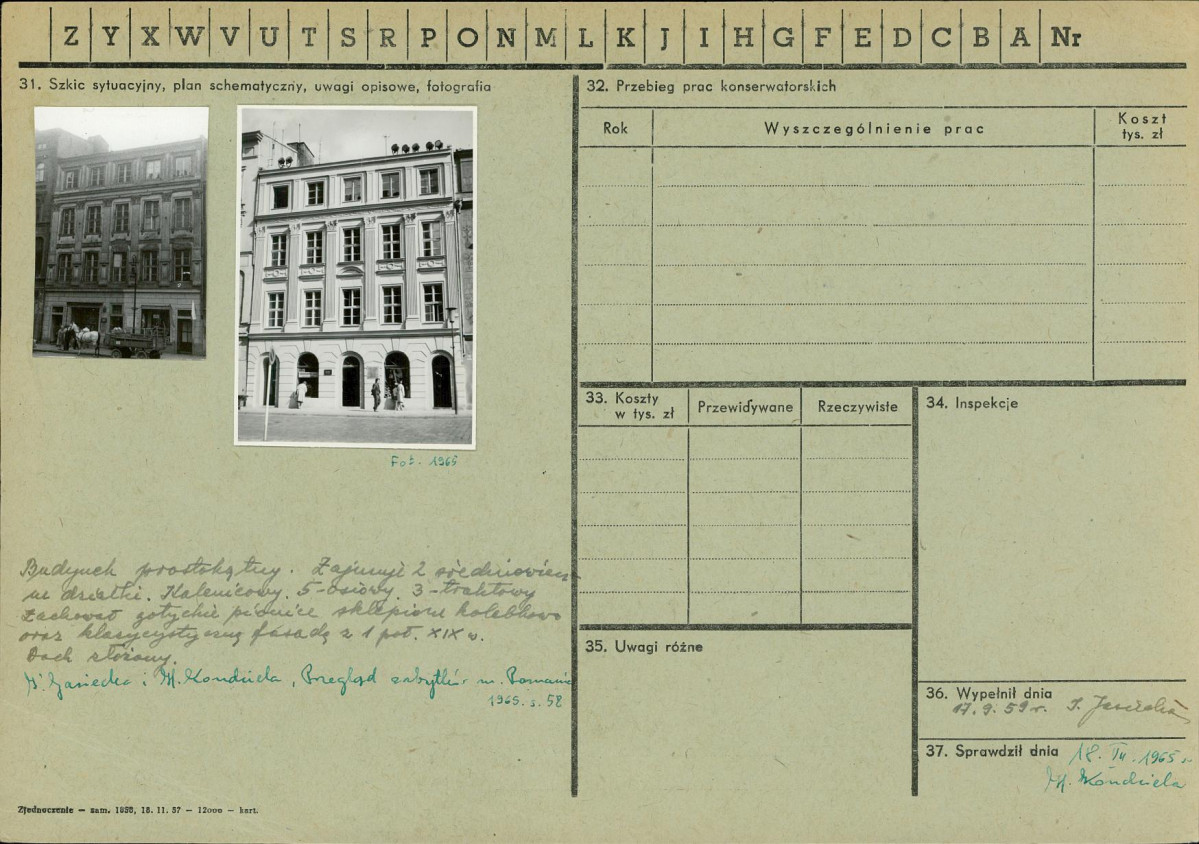 Z Y X W V U T S R P O N M L K J I H G F E D C B A Nr
31. Szkic sytuacyjny, plan schematyczny, uwagi opisowe, fotografia
Fot. 1965
Budynek prostokątny. Zajmuje 2 średniowiecz
ne działki. Kalenicowy. 5-osiowy. 3-traktowy
Zachował gotyckie piwnice sklepione kolebkowo
oraz klasycystyczną fasadę z 1 poł. XIX w.
Dach złożony.
i H. Kondziela, Przegląd zabytków m. Poznania
1965. s. 58
Zjednoczenie — zam. 1850, 18. 11. 57 — 12000 — kart.
32. Przebieg prac konserwatorskich
Rok
Wyszczególnienie prac
Koszt
tys. zł
33. Koszty
w tys. zł
Przewidywane
Rzeczywiste
34. Inspekcje
35. Uwagi różne
36. Wypełnił dnia
17. 9. 59 r.
37. Sprawdził dnia
1965 r.
H. Kondziela